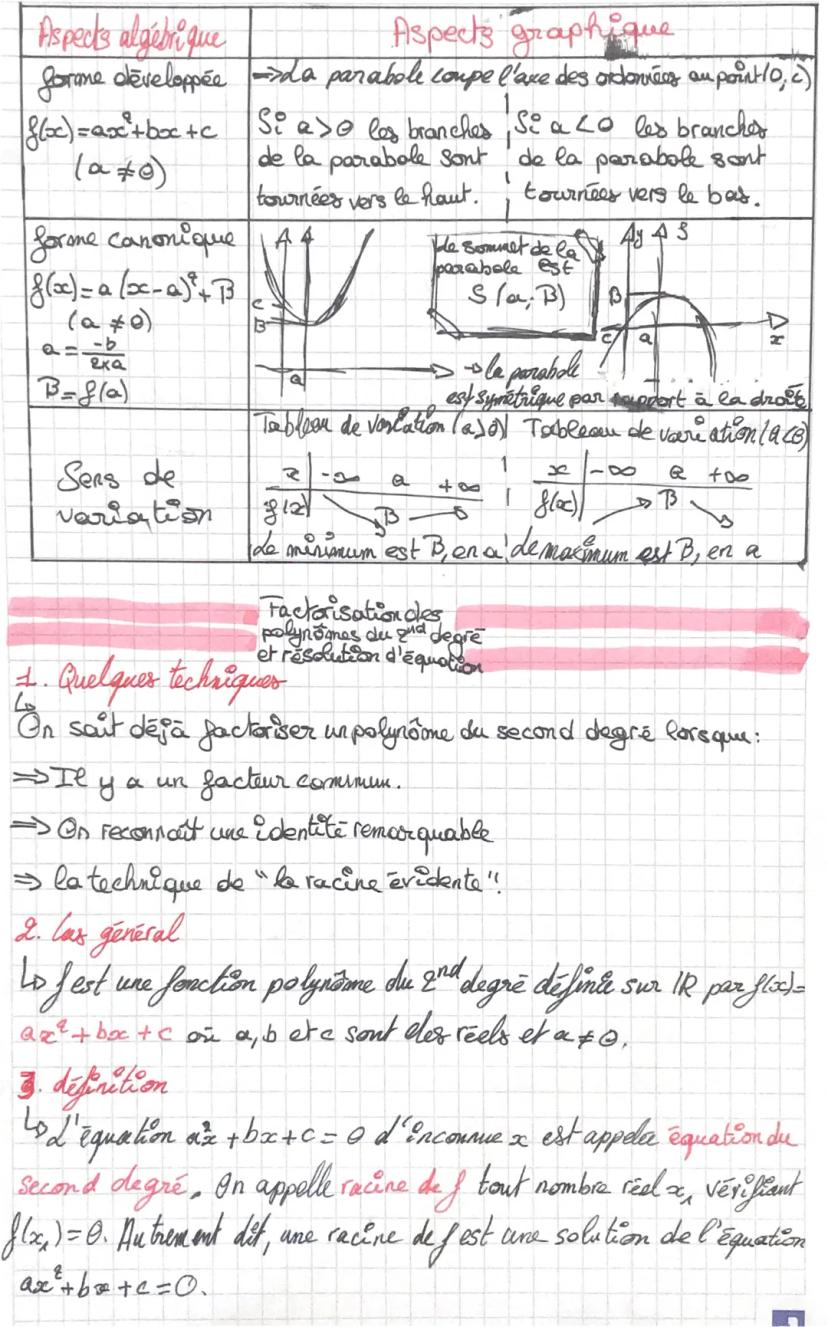 Aspects algébrique
Aspects graphique
forme développée
f(x)=ax²+bx+c
(a≠0)
=>La parabole coupe l'axe des ordonnées au point (0; c)
Si a>0 les branches
de la parabole sont
tournées vers le haut.
Si a<0 les branches
de la parabole sont
tournées vers le bas.
forme canonique
f(x)=a(x-a)²+B
(a≠0)
a=-b/2xa
B=f(a)
C
B
a
le sommet de la
parabole est
S(a; B)
y
S
B
C
a
x
→la parabole
est symétrique par rapport à la droite
Sens de
variation
Tableau de variation (a>0)
x -∞ a +∞
f(x) B
Le minimum est B, en a
Tableau de variation (a<0)
x -∞ a +∞
f(x) B
Le maximum est B, en a
Factorisation des
polynômes du 2nd degré
et résolution d'équation
1. Quelques techniques
↳
On sait déjà factoriser un polynôme du second degré lorsque:
=> Il y a un facteur commun.
=> On reconnaît une identité remarquable
=> la technique de "la racine évidente".
2. Cas général
↳ f est une fonction polynôme du 2nd degré définie sur IR par f(x)=
ax²+bx+c où a, b et c sont des réels et a≠0.
3. définition
↳ L'équation ax²+bx+c=0 d'inconnue x est appelée équation du
second degré. On appelle racine de f tout nombre réel x₁ vérifiant
f(x₁)=0. Autrement dit, une racine de f est une solution de l'équation
ax²+bx+c=0.